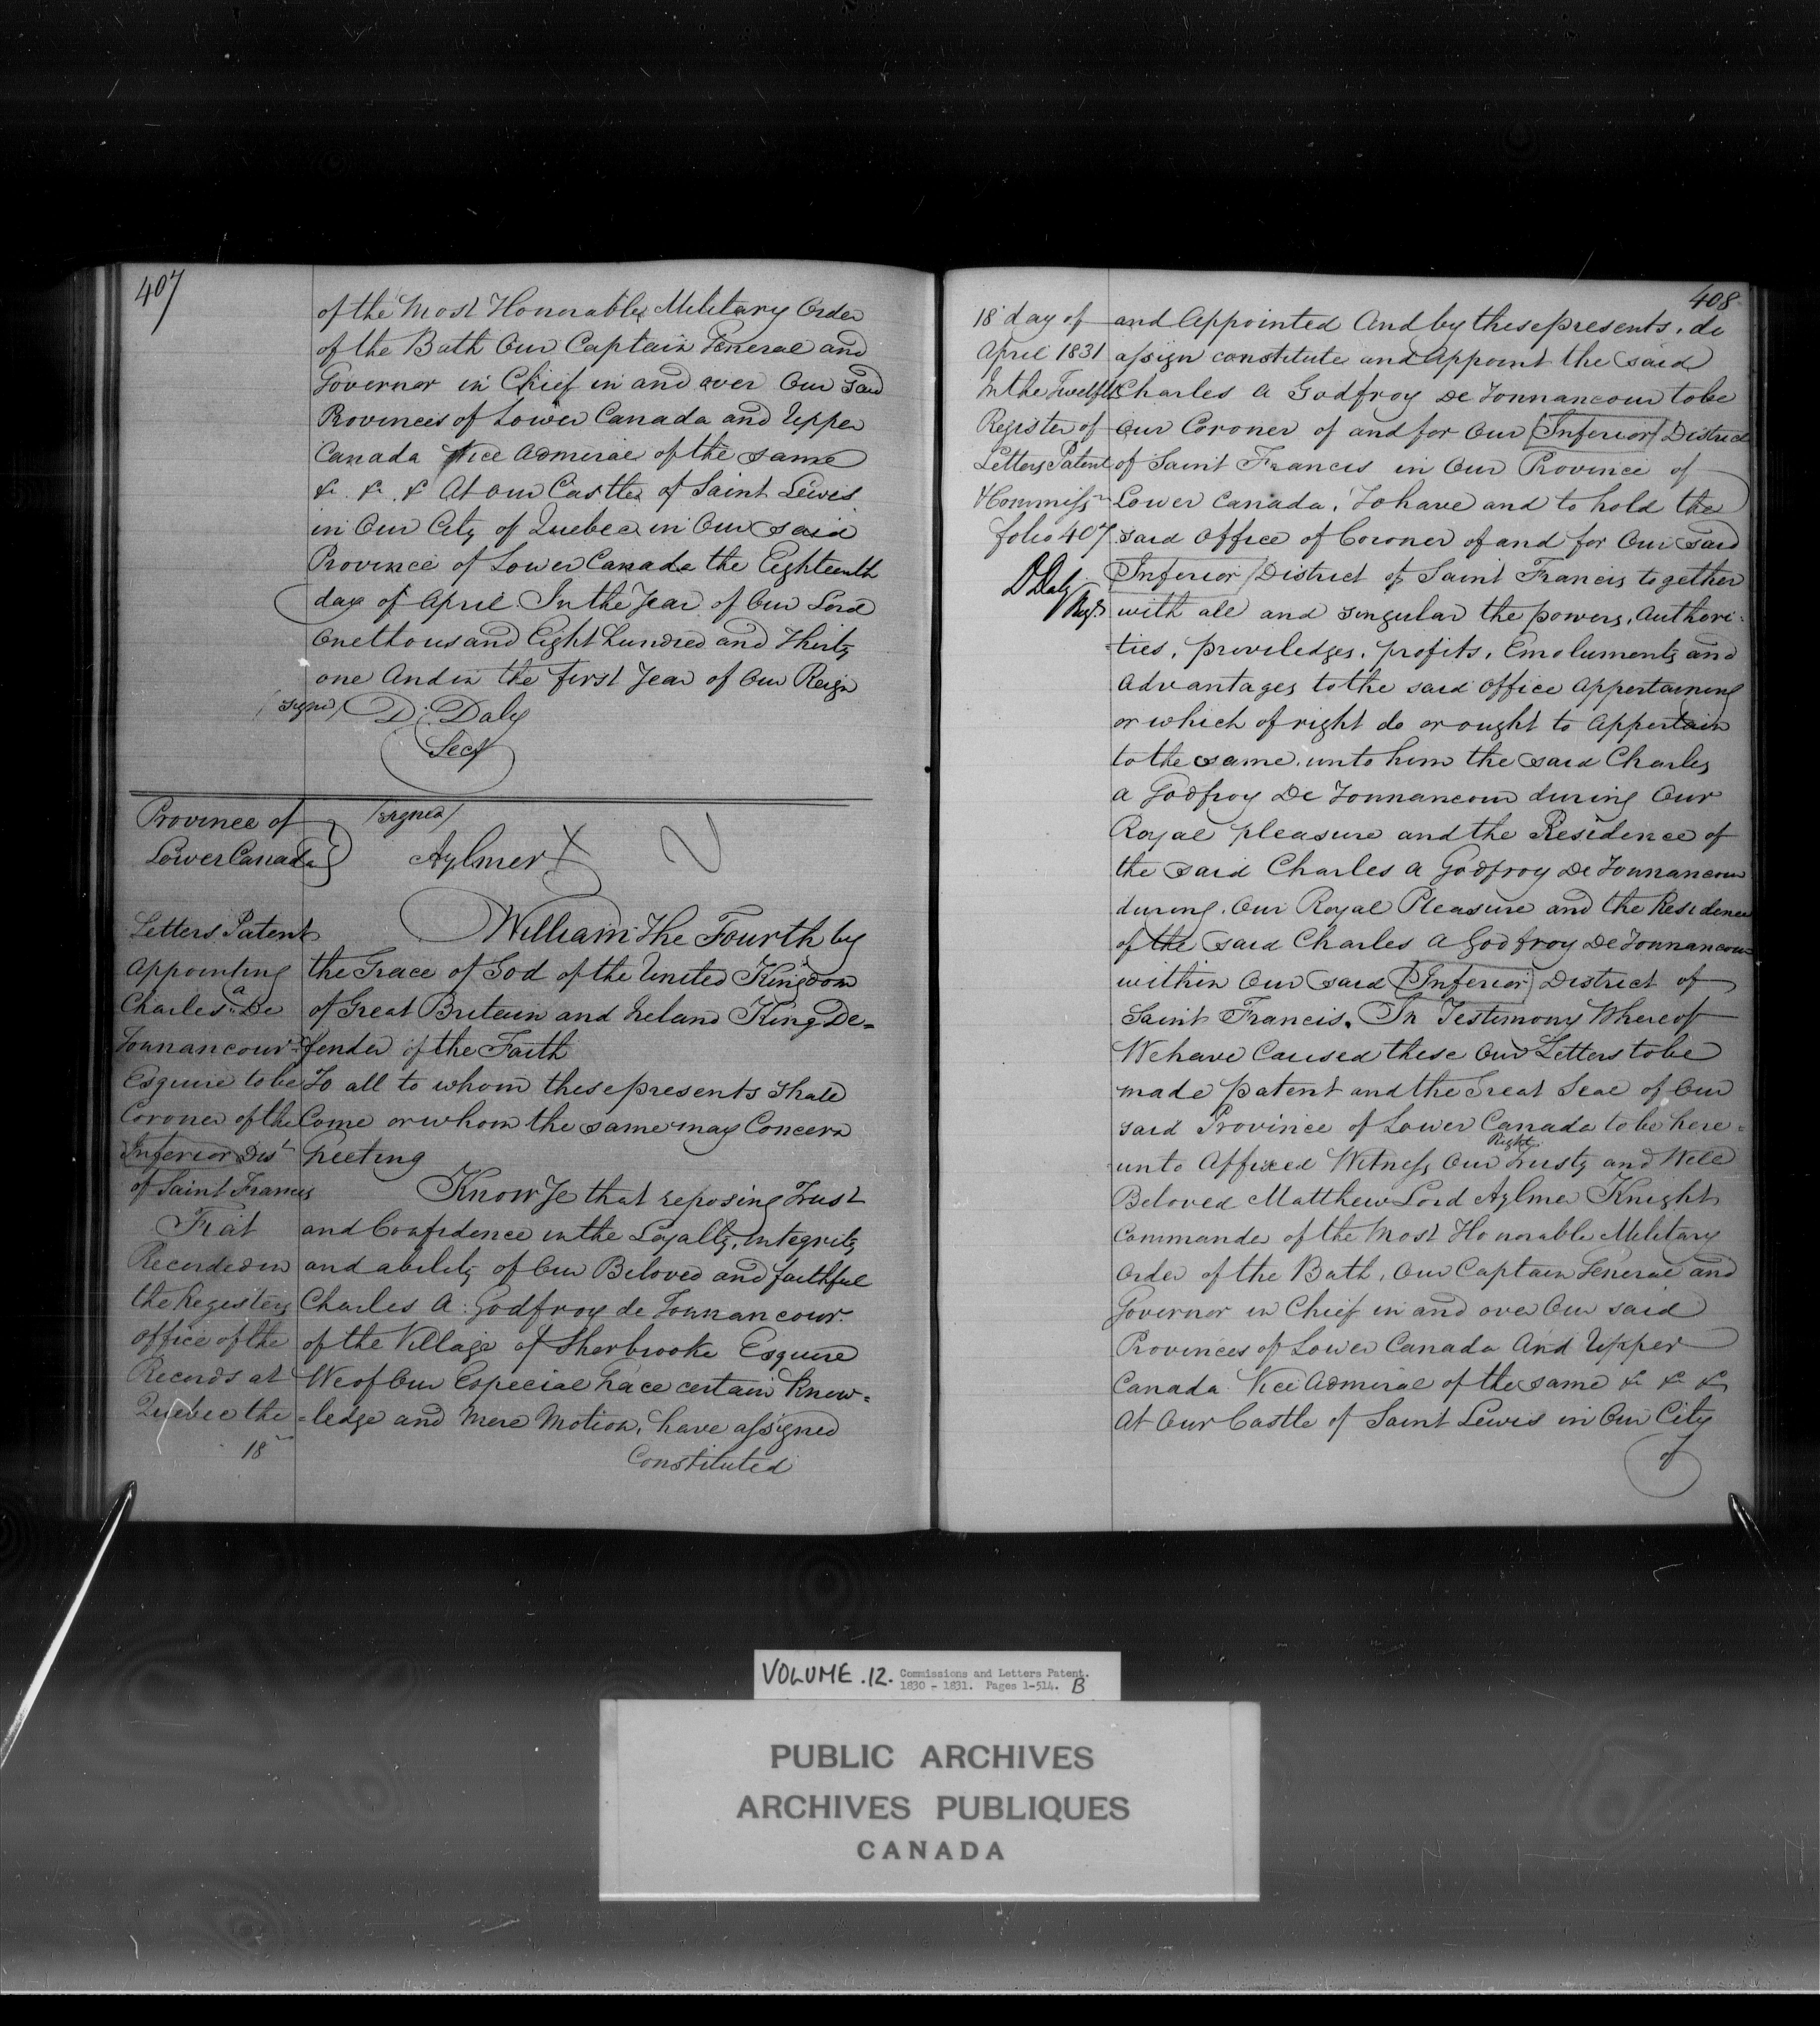 407
of the Most Honorable Military Order
of the Bath Our Captain General and
Governor in Chief in and over Our Said
Provinces of Lower Canada and Upper
Canada Vice Admiral of the same
&c. &c. &c At our Castle of Saint Lewis
in Our City of Quebec in Our said
Province of Lower Canada the Eighteenth
day of April In the Year of Our Lord
One thousand Eight hundred and Thirty
one And in the first Year of Our Reign
(signed) D. Daly
Secy
Province of
Lower Canada
(signed)
Aylmer
Letters Patent
Appointing
Charles a De
Tonnancour
Esquire to be
Coroner of the
Inferior Dist
of Saint Francis
Fiat
Recorded in
the Registers
office of the
Records at
Quebec the
18
William The Fourth by
the Grace of God of the United Kingdom
of Great Britain and Ireland King De=
fender of the Faith
To all to whom these presents shall
Come or whom the same may Concern
Greeting
Know Ye that reposing Trust
and Confidence in the Loyalty, Integrity
and ability of Our Beloved and faithful
Charles A: Godfroy de Tonnancour
of the Village of Sherbrooke Esquire
We of Our Especial Grace certain Know=
=ledge and Mere Motion, have assigned
Constituted
408
18 day of
April 1831
In the Twelfth
Register of
Letters Patent
& Commissn
folio 407
D Daly
Regr
and Appointed And by these presents, do
assign constitute and Appoint the said
Charles A Godfroy De Tonnancour to be
Our Coroner of and for Our (Inferior) District
of Saint Francis in Our Province of
Lower Canada, To have and to hold the
said Office of Coroner of and for Our said
(Inferior) District of Saint Francis together
with all and singular the powers, Authori=
=ties, priviledges, profits, Emoluments and
Advantages to the said office Appertaining
or which of right do or ought to Appertain
to the same unto him the said Charles
A Godfroy De Tonnancour during Our
Royal pleasure and the Residence of
the said Charles A Godfroy De Tonnancour
during Our Royal Pleasure and the Residence
of the said Charles A Godfroy De Tonnancour
within Our said (Inferior) District of
Saint Francis. In Testimony Whereof
We have Caused these Our Letters to be
made patent and the Great Seal of Our
said Province of Lower Canada to be here=
unto Affixed Witness Our Right Trusty and Well
Beloved Matthew Lord Aylmer Knight
Commander of the Most Honorable Military
Order of the Bath, Our Captain General and
Governor in Chief in and over Our said
Provinces of Lower Canada And Upper
Canada Vice Admiral of the same &c &c &c
At Our Castle of Saint Lewis in Our City
of
VOLUME .12. Commissions and Letters Patent.
1830 - 1831. Pages 1-514. B
PUBLIC ARCHIVES
ARCHIVES PUBLIQUES
CANADA